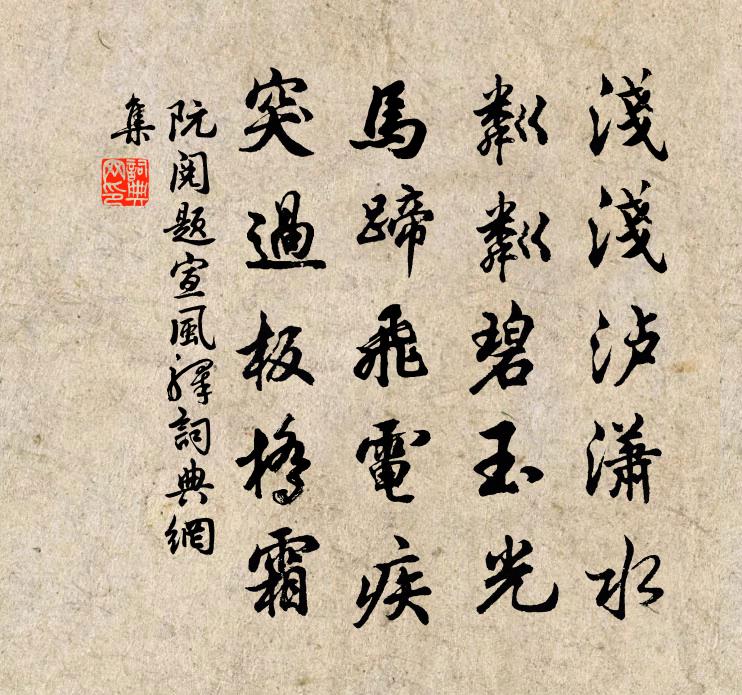 淺淺泸瀟水
粼粼碧玉光
馬蹄飛電疾
突過板橋霜
阮閱題宣風驛詞典網
集
詞典
網印